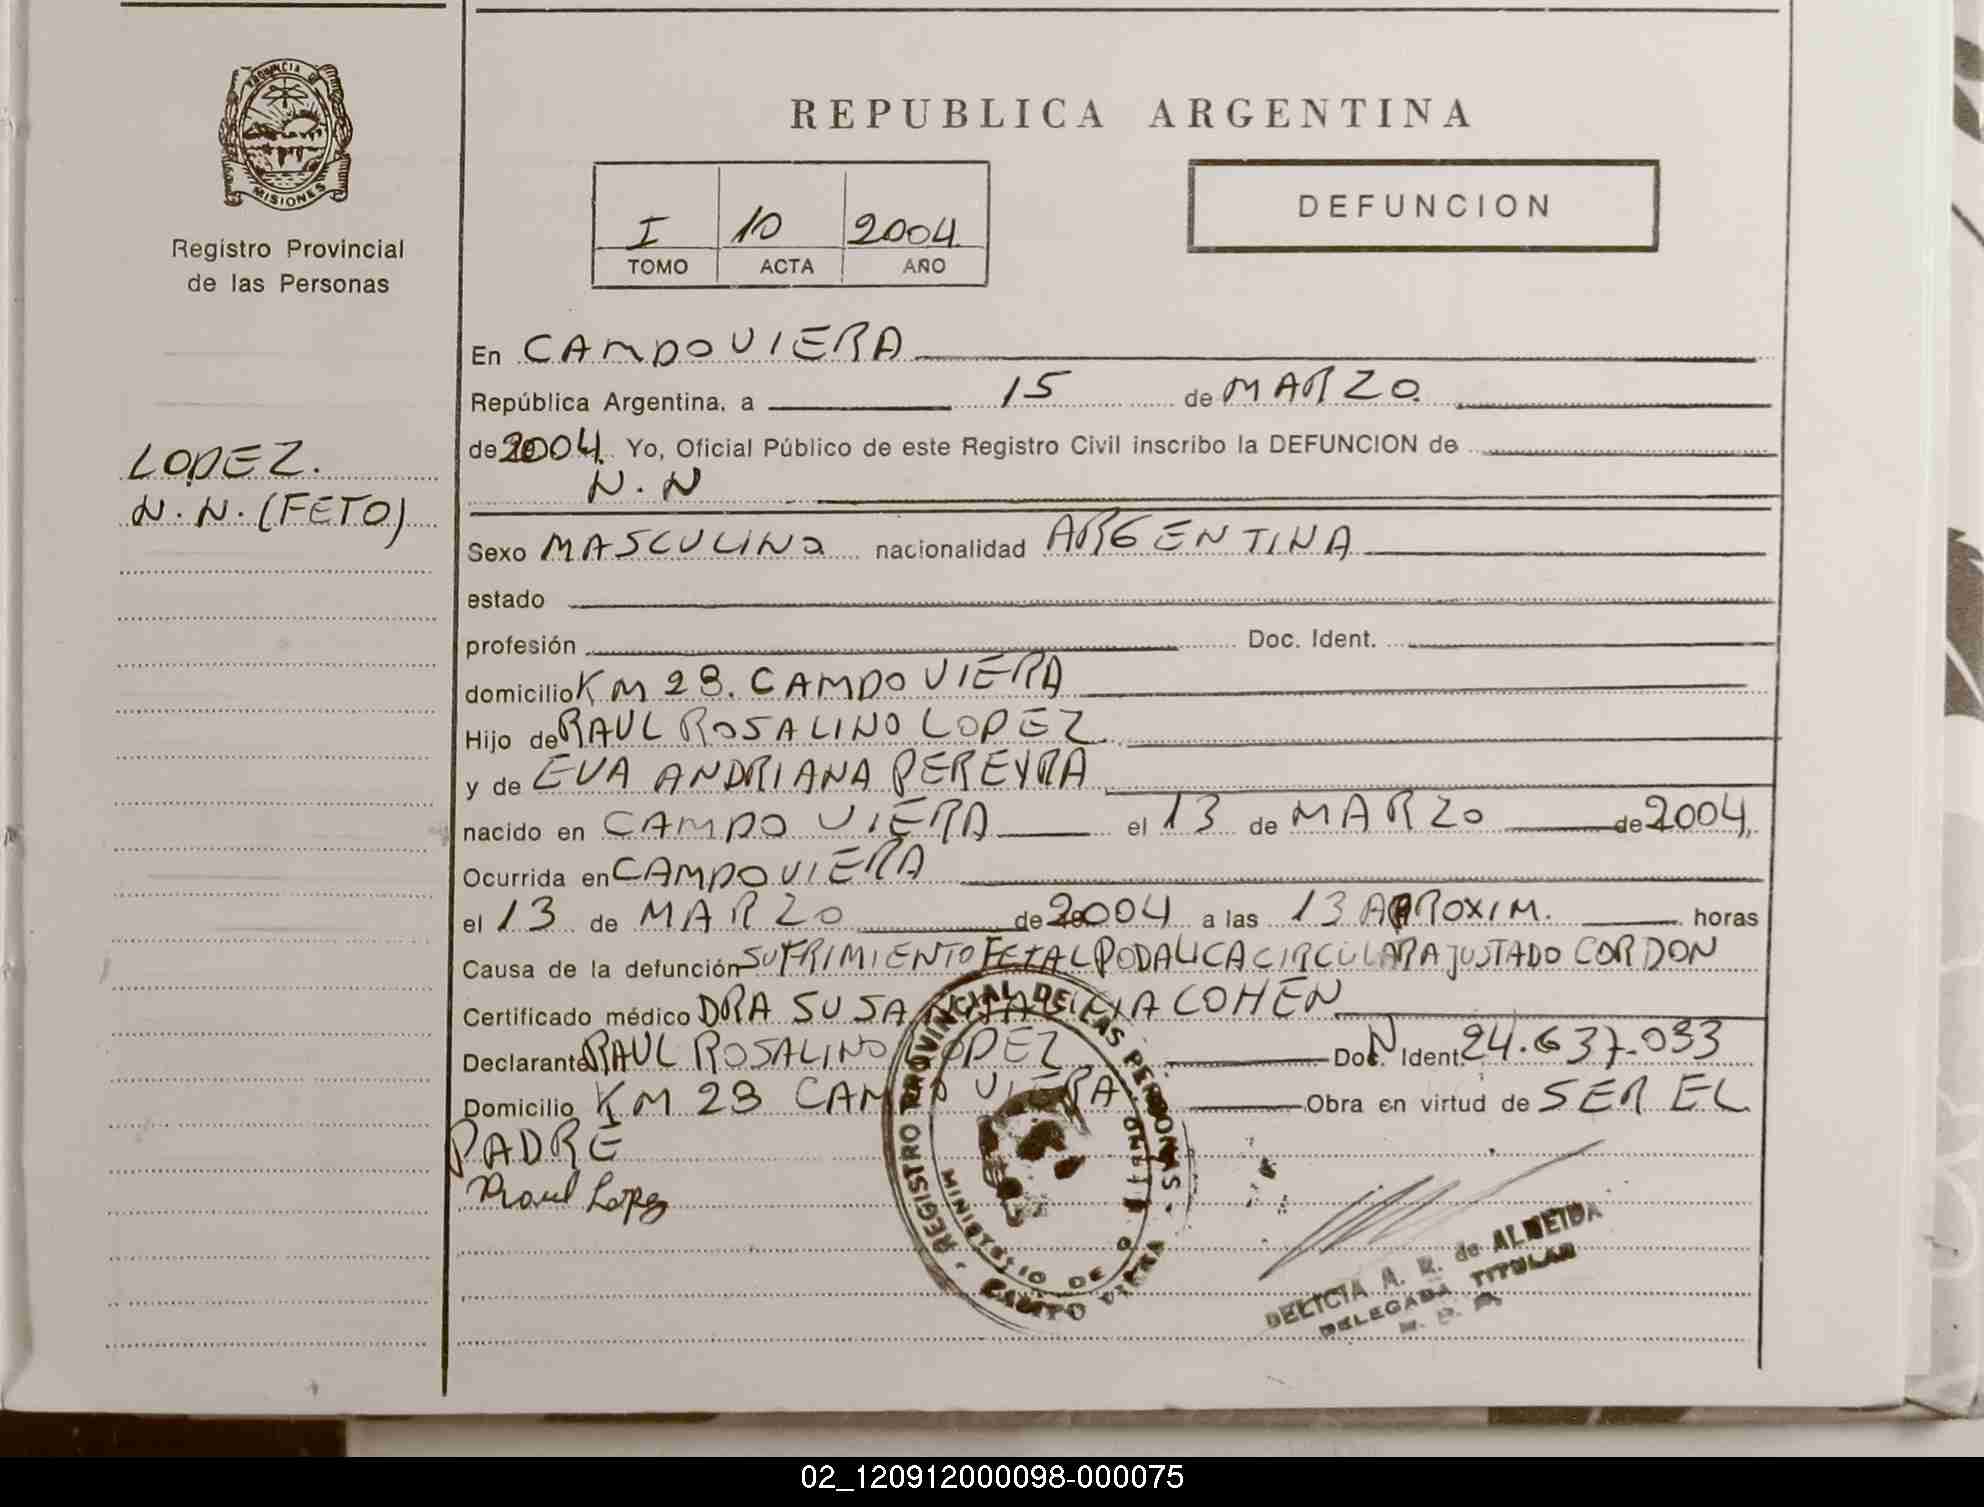 PROVINCIA DE
MISIONES
Registro Provincial
de las Personas
LOPEZ.
N.N. (FETO)
REPUBLICA ARGENTINA
I 10 2004
TOMO ACTA AÑO
DEFUNCION
En CAMPO VIERA
República Argentina, a 15 de MARZO.
de 2004. Yo, Oficial Público de este Registro Civil inscribo la DEFUNCION de
N.N
Sexo MASCULINO nacionalidad ARGENTINA
estado
profesión Doc. Ident.
domicilio KM 28. CAMPO VIERA
Hijo de RAUL ROSALINO LOPEZ
y de EVA ANDRIANA PEREYRA
nacido en CAMPO VIERA el 13 de MARZO de 2004.
Ocurrida en CAMPO VIERA
el 13 de MARZO de 2004 a las 13 APROXIM. horas
Causa de la defunción SUFRIMIENTO FETAL PODALICA CIRCULAR AJUSTADO CORDON
Certificado médico DRA SUSANA COHEN
Declarante RAUL ROSALINO LOPEZ Doc. N Ident. 24.637.033
Domicilio KM 28 CAMPO VIERA Obra en virtud de SER EL
PADRE
Raul Lopez
REGISTRO PROVINCIAL DE LAS PERSONAS
MINISTERIO DE GOBIERNO
CAMPO VIERA
DELICIA A. R. de ALMEIDA
DELEGADA TITULAR
02_120912000098-000075